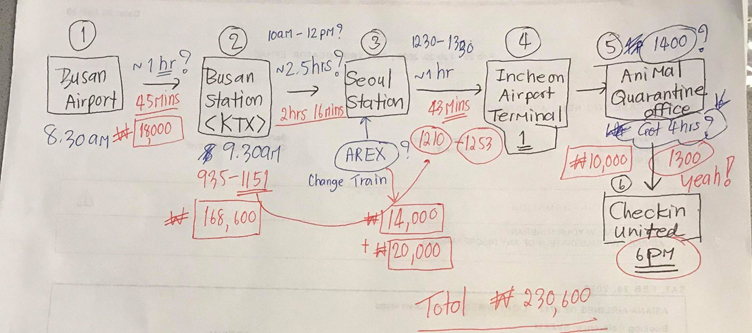 1
Busan
Airport
8.30am
~1hr?
45mins
₩ 18,000
2
Busan
Station
<KTX>
$ 9.30am
935-1151
₩ 168,600
10am-12pm?
~2.5hrs?
2hrs 16mins
3
Seoul
Station
AREX?
Change Train
₩ 14,000
+ ₩ 20,000
1230-1330
~1hr
43Mins
1210-1253
4
Incheon
Airport
Terminal
1
5
1400?
AniMal
Quarantine
office
Got 4hrs?
₩10,000
1300
yeah!
6
Checkin
united
6PM
Total ₩ 230,600